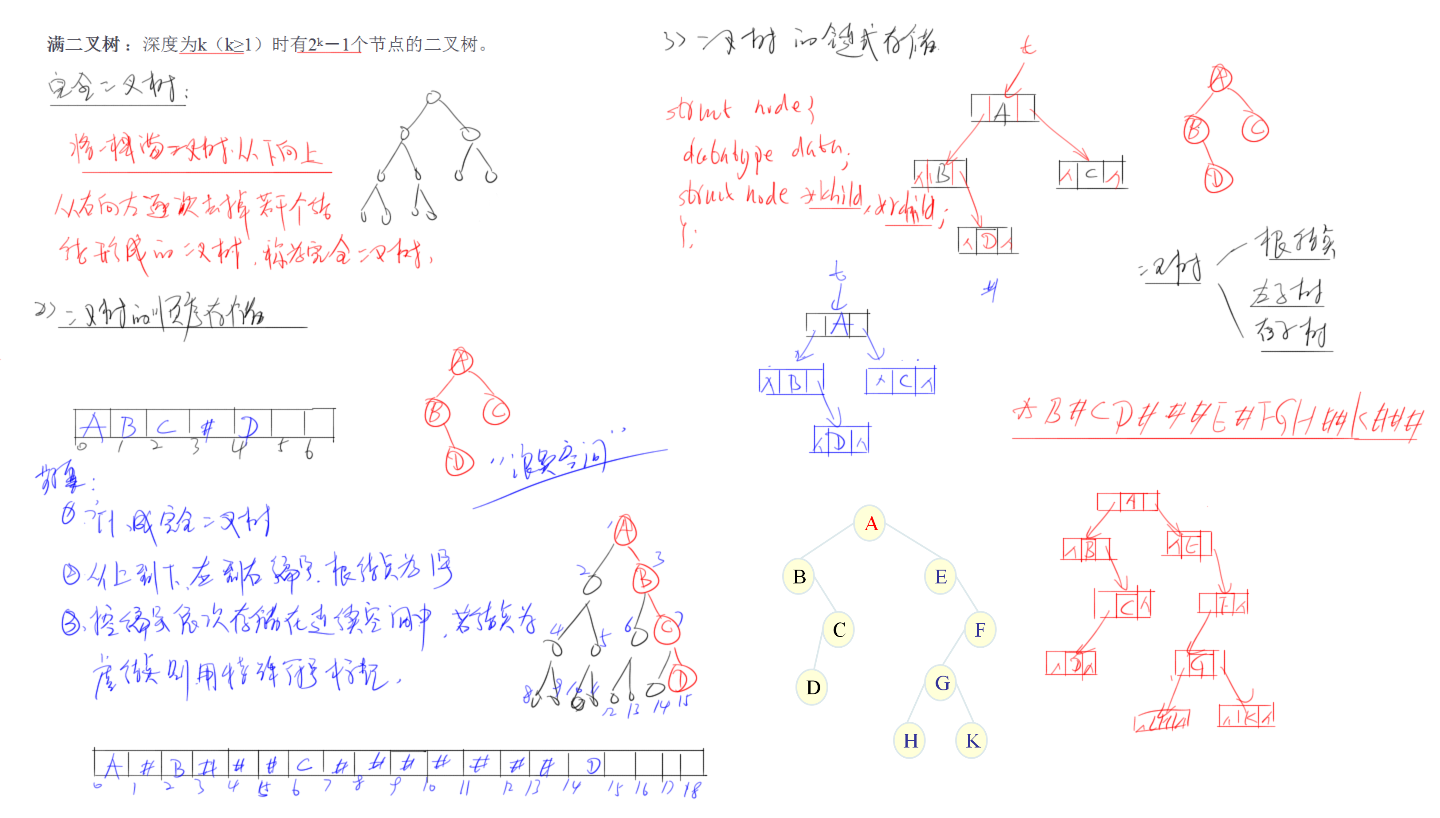 满二叉树：深度为k（k≥1）时有2ᵏ－1个节点的二叉树。
完全二叉树：
将一棵满二叉树从下向上
从右向左逐次去掉若干个结
点形成的二叉树，称为完全二叉树。
2) 二叉树的顺序存储
A B C # D
0 1 2 3 4 5 6
A
B C
D
“浪费空间”
① 补成完全二叉树
② 从上到下、左到右编号，根结点为1号
③ 按编号依次存储在连续空间中，若结点为
虚结点则用特殊符号标记。
1 A
2 B 3
4 5 6 C 7
8 9 10 11 12 13 14 D 15
A # B # # # C # # # # # # # D
0 1 2 3 4 5 6 7 8 9 10 11 12 13 14 15 16 17 18
3) 二叉树的链式存储
struct node{
datatype data;
struct node *lchild, *rchild;
};
t
A
∧ B ∧ C ∧
∧ D ∧
#
A
B C
D
二叉树
根结点
左子树
右子树
t
A
∧ B ∧ C ∧
∧ D ∧
A B # C D # # # E # F G H # # K # # #
A
B E
C F
D G
H K
A
∧ B ∧ E
C ∧ F ∧
∧ D ∧ G
∧ H ∧ ∧ K ∧